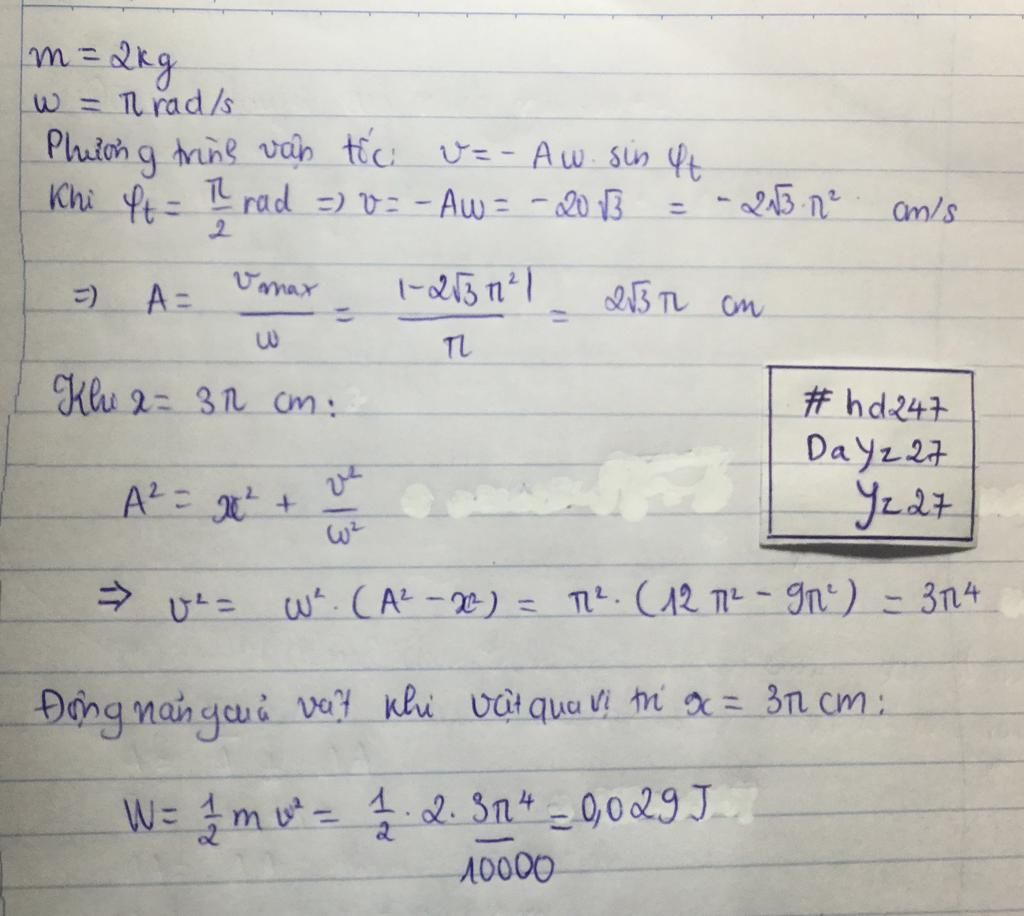 m = 2kg
ω = π rad/s
Phương trình vận tốc: v = - Aω. sin φt
Khi φt = π/2 rad => v = - Aω = - 20√3 = - 2√3.π² cm/s
=> A = vmax/ω = |-2√3π²|/π = 2√3π cm
Khi x = 3π cm:
#hd247
DaYz27
Yz27
A² = x² + v²/ω²
=> v² = ω².(A² - x²) = π².(12π² - 9π²) = 3π⁴
Động năng của vật khi vật qua vị trí x = 3π cm:
W = 1/2 m v² = 1/2 . 2. 3π⁴/10000 = 0,029 J